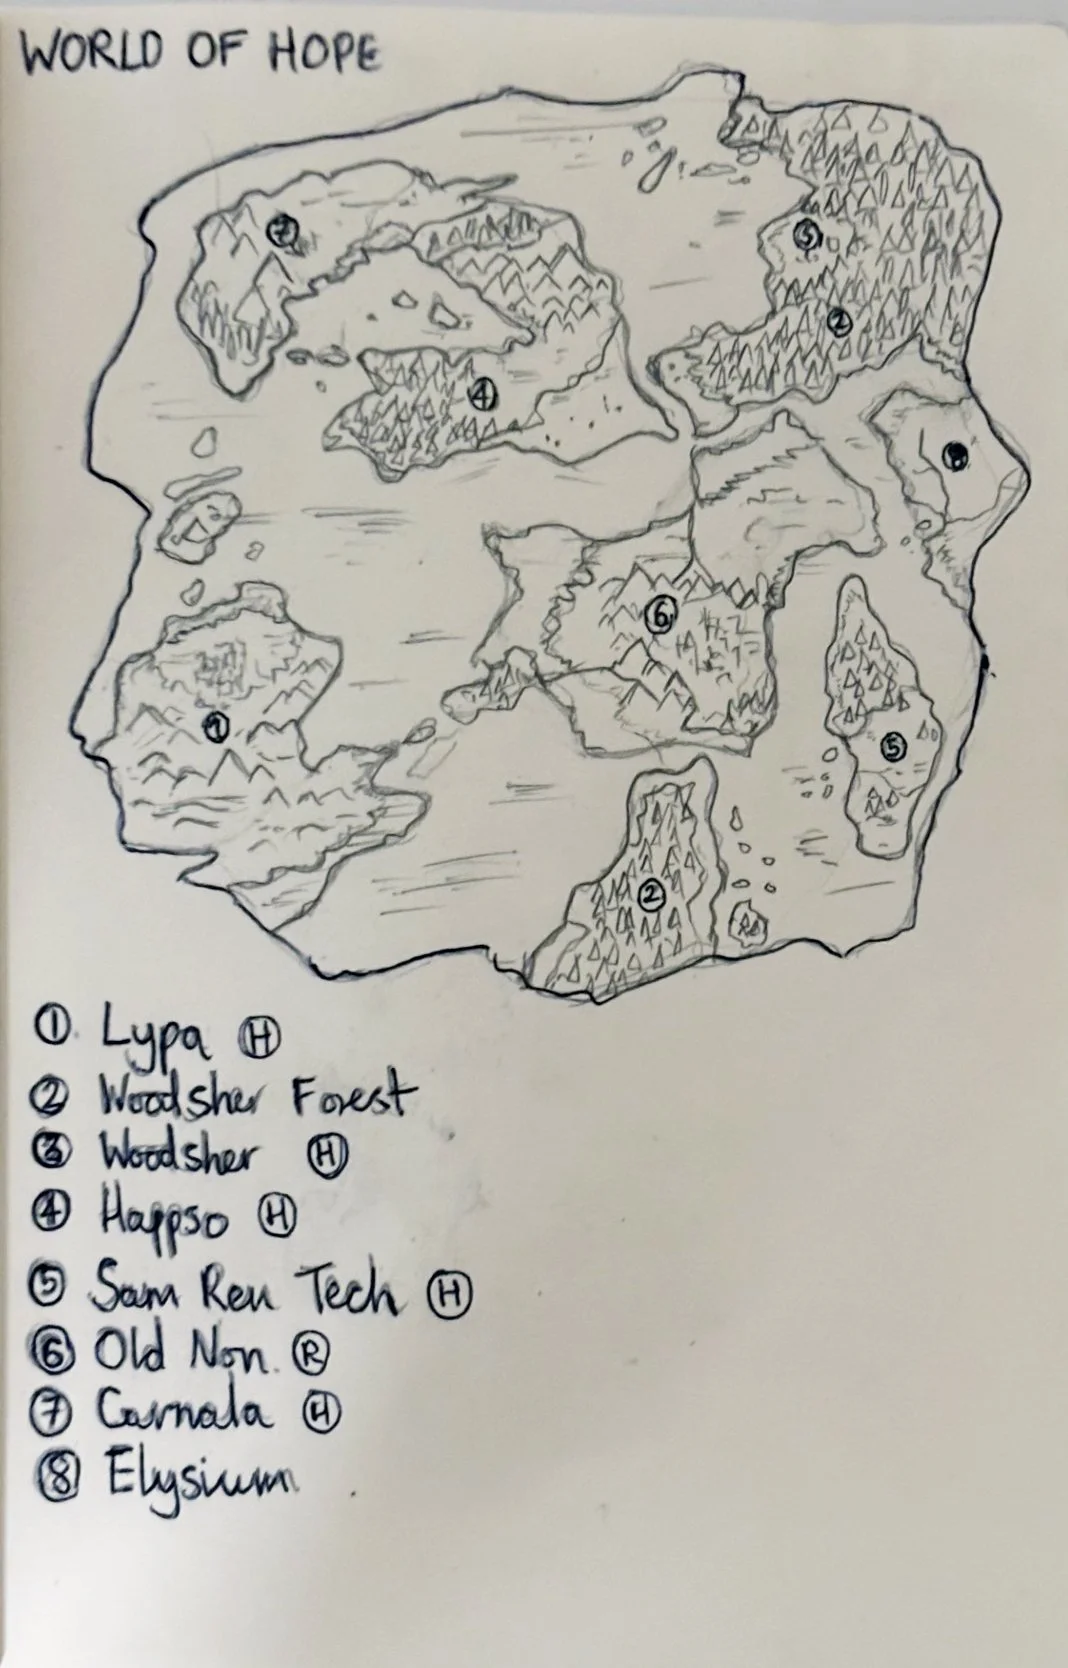 WORLD OF HOPE
7
3
2
4
8
6
1
5
2
① Lypa Ⓗ
② Woodsher Forest
③ Woodsher Ⓗ
④ Happso Ⓗ
⑤ Sam Ren Tech Ⓗ
⑥ Old Non. Ⓡ
⑦ Carnala Ⓗ
⑧ Elysium